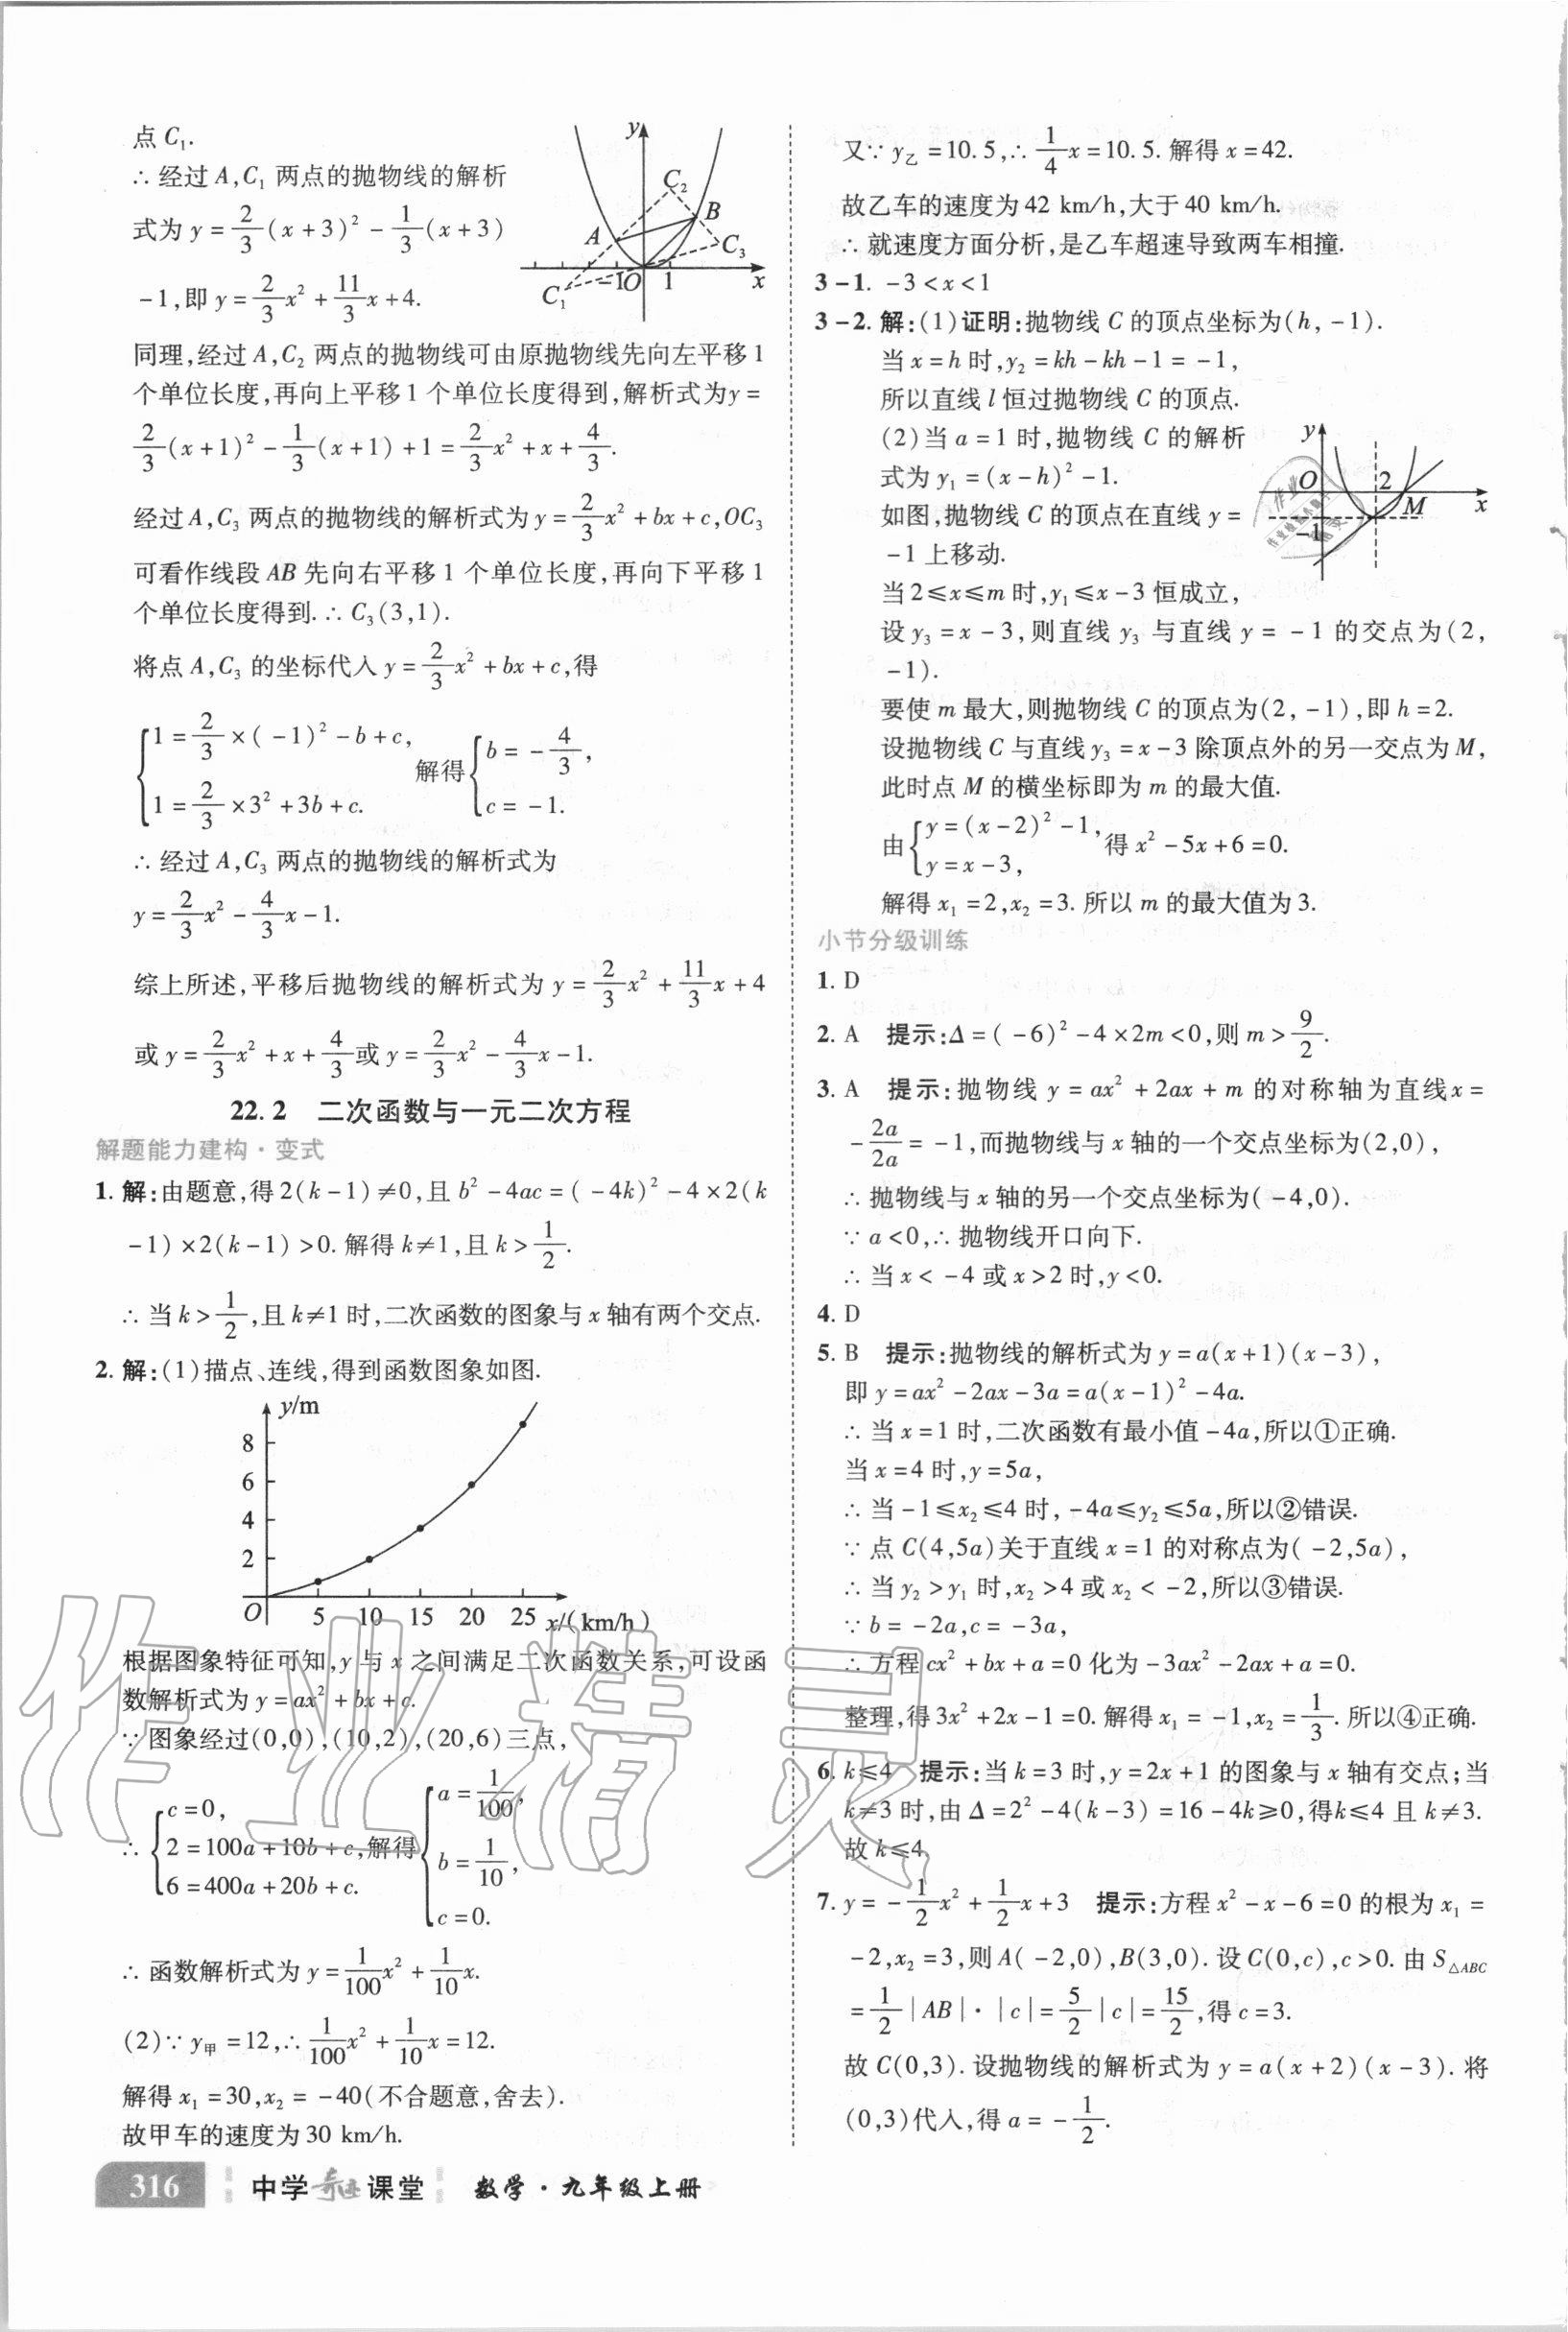 点 C₁.
∴ 经过 A,C₁ 两点的抛物线的解析
式为 y = 2/3(x+3)² - 1/3(x+3)
-1,即 y = 2/3x² + 11/3x+4.
y
C₂
B
A
C₃
C₁
-1
O
1
x
同理,经过 A,C₂ 两点的抛物线可由原抛物线先向左平移 1
个单位长度,再向上平移 1 个单位长度得到,解析式为y =
2/3(x+1)² - 1/3(x+1) +1 = 2/3x² + x + 4/3.
经过 A,C₃ 两点的抛物线的解析式为 y = 2/3x² + bx + c,OC₃
可看作线段 AB 先向右平移 1 个单位长度,再向下平移 1
个单位长度得到.∴ C₃(3,1).
将点 A,C₃ 的坐标代入 y = 2/3x² + bx + c,得
{1 = 2/3 ×(-1)² - b + c, 1 = 2/3 ×3² +3b + c. 解得 {b = -4/3, c = -1.
∴ 经过 A,C₃ 两点的抛物线的解析式为
y = 2/3x² - 4/3x - 1.
综上所述,平移后抛物线的解析式为 y = 2/3x² + 11/3x + 4
或 y = 2/3x² + x + 4/3或 y = 2/3x² - 4/3x - 1.
22.2 二次函数与一元二次方程
解题能力建构·变式
1. 解:由题意,得 2(k-1)≠0,且 b² -4ac = (-4k)² -4×2(k
-1)×2(k-1) >0. 解得 k≠1,且 k > 1/2.
∴ 当 k > 1/2,且 k≠1 时,二次函数的图象与 x 轴有两个交点.
2. 解:(1)描点、连线,得到函数图象如图.
y/m
8
6
4
2
O 5 10 15 20 25 x/(km/h)
根据图象特征可知,y 与 x 之间满足二次函数关系,可设函
数解析式为 y = ax² + bx + c.
∵ 图象经过(0,0),(10,2),(20,6)三点,
∴ {c = 0, 2 = 100a + 10b + c, 6 = 400a + 20b + c. 解得 {a = 1/100, b = 1/10, c = 0.
∴ 函数解析式为 y = 1/100x² + 1/10x.
(2)∵ y甲 = 12,∴ 1/100x² + 1/10x = 12.
解得 x₁ = 30,x₂ = -40(不合题意,舍去).
故甲车的速度为 30 km/h.
316 中学奇迹课堂 数学·九年级上册
又∵ y乙 = 10.5,∴ 1/4x = 10.5. 解得 x = 42.
故乙车的速度为 42 km/h,大于 40 km/h.
∴ 就速度方面分析,是乙车超速导致两车相撞.
3-1. -3 < x < 1
3-2. 解:(1)证明:抛物线 C 的顶点坐标为(h, -1).
当 x = h 时,y₂ = kh - kh - 1 = -1,
所以直线 l 恒过抛物线 C 的顶点.
(2)当 a = 1 时,抛物线 C 的解析
式为 y₁ = (x-h)² -1.
如图,抛物线 C 的顶点在直线 y =
-1 上移动.
y
O
2
M
x
-1
当 2≤x≤m 时,y₁≤x-3 恒成立,
设 y₃ = x-3,则直线 y₃ 与直线 y = -1 的交点为(2,
-1).
要使 m 最大,则抛物线 C 的顶点为(2, -1),即 h = 2.
设抛物线 C 与直线 y₃ = x-3 除顶点外的另一交点为 M,
此时点 M 的横坐标即为 m 的最大值.
由 {y = (x-2)² -1, y = x-3, 得 x² -5x+6 = 0.
解得 x₁ = 2,x₂ = 3. 所以 m 的最大值为 3.
小节分级训练
1. D
2. A 提示:Δ = (-6)² -4×2m < 0,则 m > 9/2.
3. A 提示:抛物线 y = ax² + 2ax + m 的对称轴为直线 x =
-2a/2a = -1,而抛物线与 x 轴的一个交点坐标为(2,0),
∴ 抛物线与 x 轴的另一个交点坐标为(-4,0).
∵ a < 0,∴ 抛物线开口向下.
∴ 当 x < -4 或 x > 2 时,y < 0.
4. D
5. B 提示:抛物线的解析式为 y = a(x+1)(x-3),
即 y = ax² -2ax -3a = a(x-1)² -4a.
∴ 当 x = 1 时,二次函数有最小值 -4a,所以①正确.
当 x = 4 时,y = 5a,
∴ 当 -1≤x₂≤4 时, -4a≤y₂≤5a,所以②错误.
∵ 点 C(4,5a)关于直线 x = 1 的对称点为(-2,5a),
∴ 当 y₂ > y₁ 时,x₂ > 4 或 x₂ < -2,所以③错误.
∵ b = -2a,c = -3a,
∴ 方程 cx² + bx + a = 0 化为 -3ax² -2ax + a = 0.
整理,得 3x² +2x -1 = 0. 解得 x₁ = -1,x₂ = 1/3. 所以④正确.
6. k≤4 提示:当 k = 3 时,y = 2x+1 的图象与 x 轴有交点;当
k≠3 时,由 Δ = 2² -4(k-3) = 16 -4k≥0,得k≤4 且 k≠3.
故 k≤4.
7. y = -1/2x² + 1/2x + 3 提示:方程 x² - x - 6 = 0 的根为 x₁ =
-2,x₂ = 3,则 A(-2,0),B(3,0). 设 C(0,c),c > 0. 由 S△ABC
= 1/2|AB|·|c| = 5/2|c| = 15/2,得 c = 3.
故 C(0,3). 设抛物线的解析式为 y = a(x+2)(x-3). 将
(0,3)代入,得 a = -1/2.
作业精灵